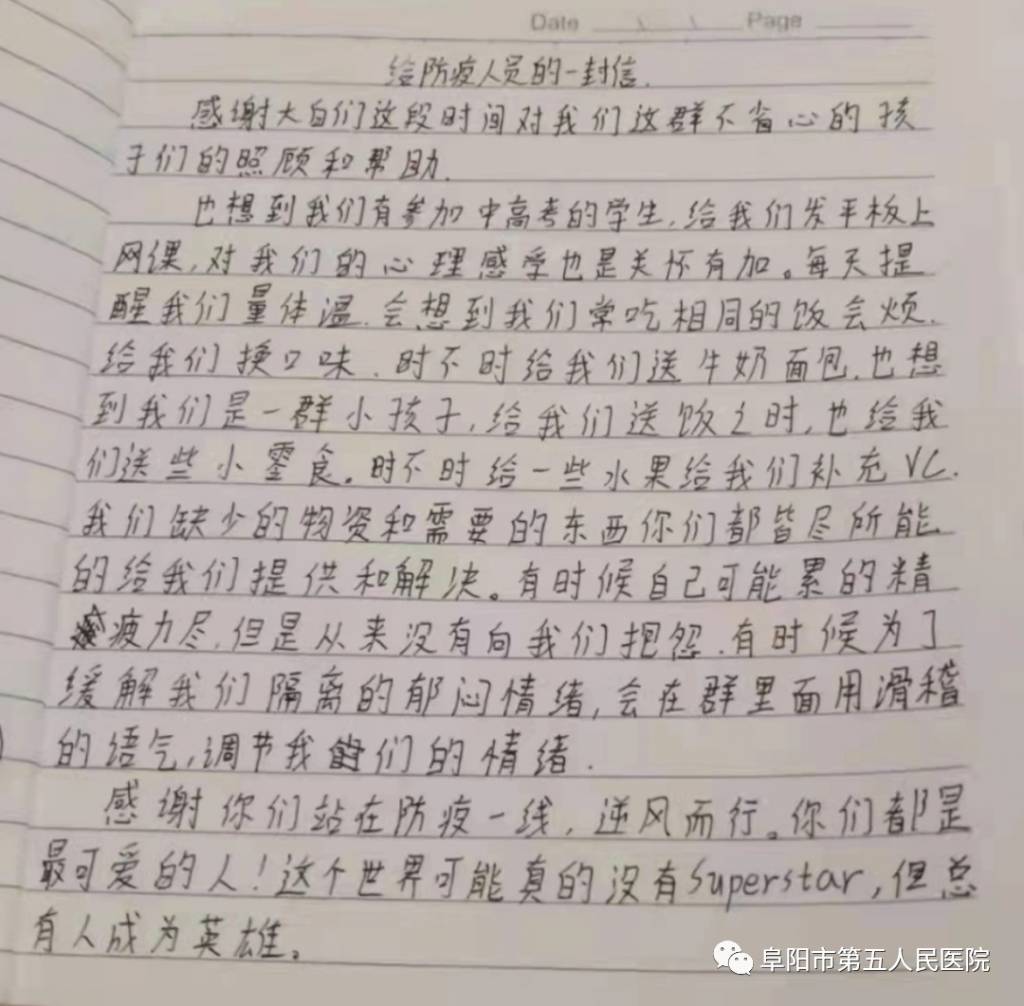 Date Page
给防疫人员的一封信.
感谢大白们这段时间对我们这群不省心的孩
子们的照顾和帮助.
也想到我们有参加中高考的学生,给我们发平板上
网课,对我们的心理感受也是关怀有加。每天提
醒我们量体温.会想到我们常吃相同的饭会烦.
给我们换口味.时不时给我们送牛奶面包.也想
到我们是一群小孩子,给我们送饭之时,也给我
们送些小零食。时不时给一些水果给我们补充VC.
我们缺少的物资和需要的东西你们都皆尽所能
的给我们提供和解决。有时候自己可能累的精
疲力尽,但是从来没有向我们抱怨.有时候为了
缓解我们隔离的郁闷情绪,会在群里面用滑稽
的语气,调节我们的情绪.
感谢你们站在防疫一线,逆风而行。你们都是
最可爱的人!这个世界可能真的没有Superstar,但总
有人成为英雄。
阜阳市第五人民医院